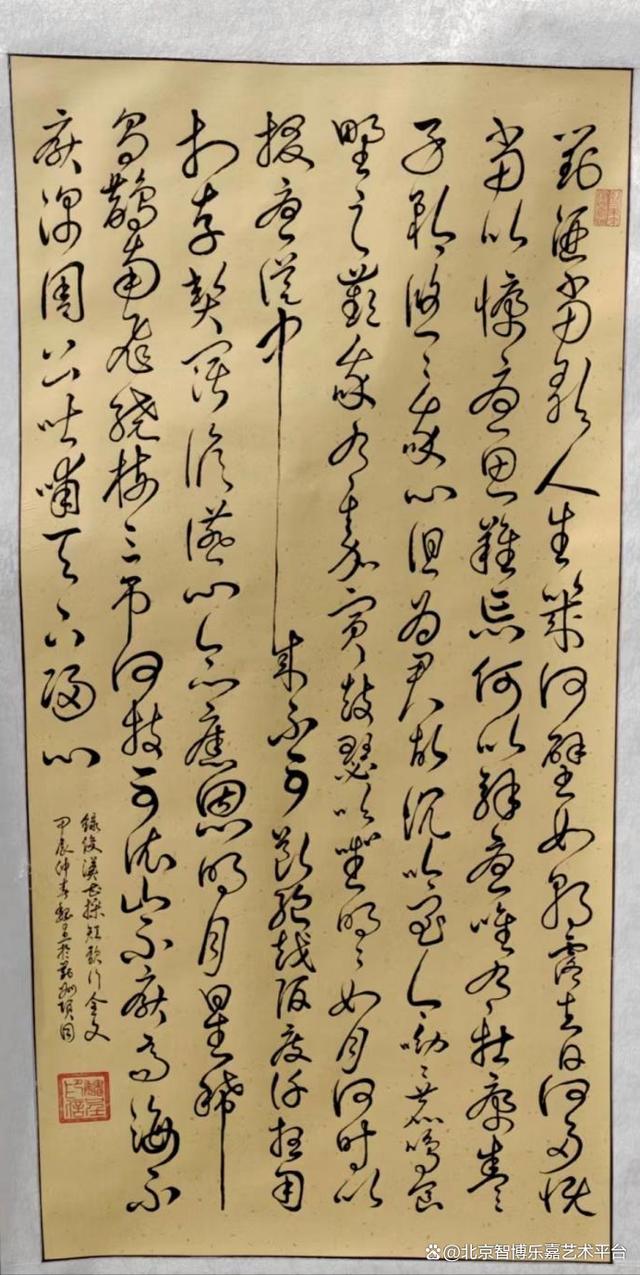 對酒當歌人生幾何譬如朝露去日何多慨
當以慷憂思難忘何以解憂唯有杜康青々
子衿悠々我心但為君故沉吟至今呦々鹿鳴食
野之蘋我有嘉賓鼓瑟吹笙明々如月何時以
掇憂從中來不可斷絕越陌度阡枉用
相存契闊談讌心念舊恩明月星稀
烏鵲南飛繞樹三匝何枝可依山不厭高海不
厭深周公吐哺天下歸心
錄後漢曹操短歌行全文
甲辰仲春魏星於
@北京智博乐嘉艺术平台